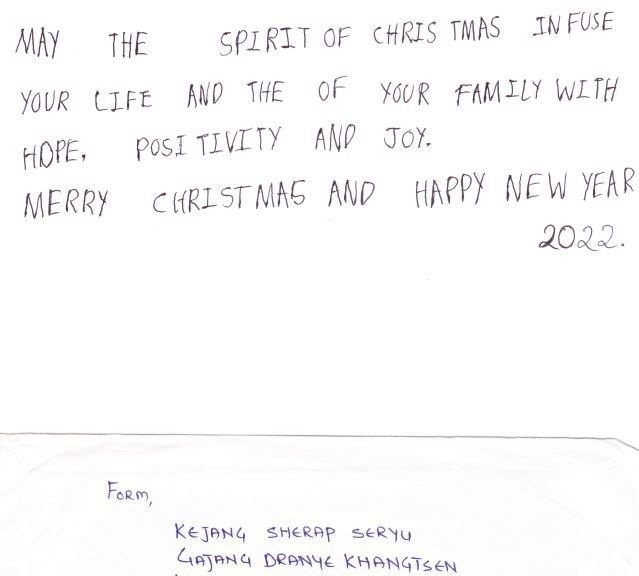 MAY THE SPIRIT OF CHRISTMAS INFUSE
YOUR LIFE AND THE OF YOUR FAMILY WITH
HOPE. POSITIVITY AND JOY.
MERRY CHRISTMAS AND HAPPY NEW YEAR
2022.
FORM,
KEJANG SHERAP SERYU
GAJANG DRANYE KHANGTSEN